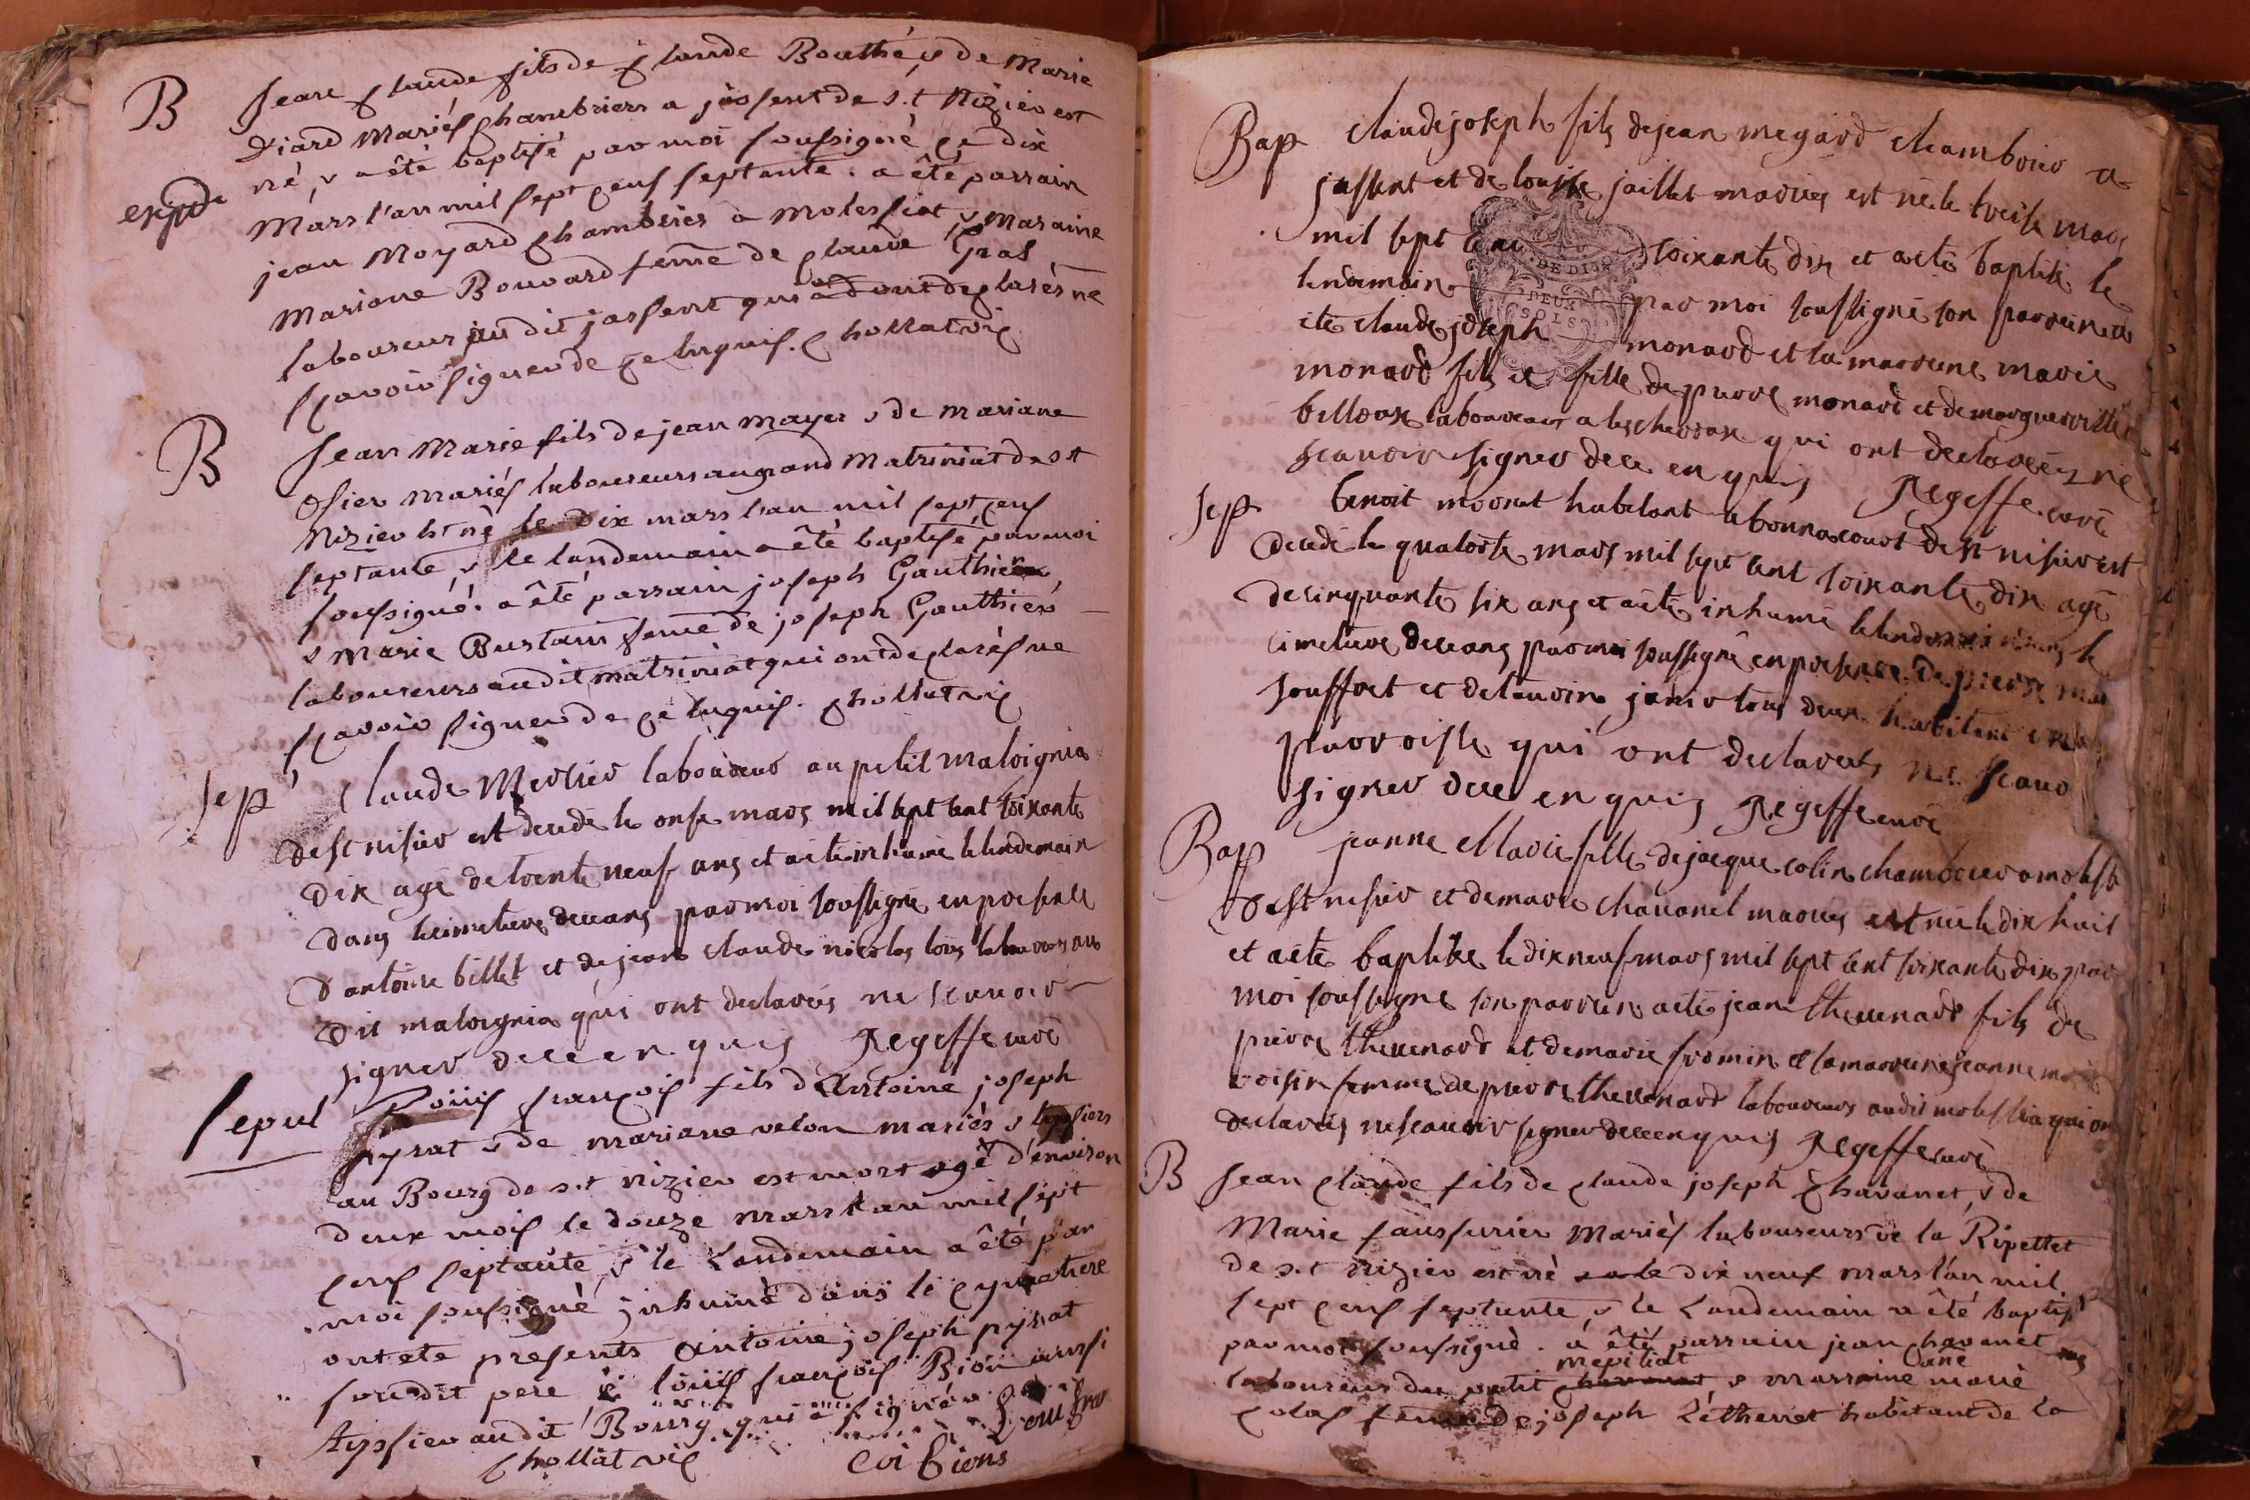 B Jean Claude fils de Claude Bouthé & de Marie
Diard Mariés Chambriers a jassent de s.t Nizier est
né, & a été baptisé par moi soussigné ce dix
expde
Mars l'an mil sept cens septante. a été parrain
jean Moyard Chambrier à & Maraine
Mariane Bouvard feme de Claude Gras
laboureur au dit jassent qui ont déclarés ne
sçavoir signer de ce enquis. Chollat vic
B Jean Marie fils de jean Mayer & de Mariane
Ofier mariés laboureurs au grand Matriniat de st
Nizier est né le dix mars l'an mil sept cens
septante, & le landemain a été baptisé par moi
soussigné. a été parrain joseph Gauthier
& Marie Bustain feme de joseph Gauthier
laboureurs au dit matriniat qui ont déclarés ne
sçavoir signer de ce enquis. Chollat vic
sep Claude Mercier laboureur au petit
de st nisier est decede le onse mars mil sept cent soixante
dix agé de trente neuf ans et a ete inhumé le lendemain
dans le cimetiere de ceans par moi soussigné en presence
d antoine billet et de jean claude nicolas tous laboureurs au
dit qui ont declarés ne scavoir
signer de ce enquis Regeffe curé
sepul Loüis françois fils d'Antoine joseph
pyrat & de mariane velon mariés &
au Bourg de s.t nizier est mort agé d'environ
deux mois le douze mars l'an mil sept
cens septante, & le Landemain a été par
moi soussigné, inhumé dans le cymetiere
ont ete presents Antoine joseph pyrat
susdit pere & loüis françois Bion aussi
au dit Bourg qui a signé
Chollat vic
Bap claude joseph fils de jean megard chambrier a
jassent et de louise jaillet mariés est né le treise mars
mil sept cent soixante dix et a ete baptisé le
DE DIJON
lendemain par moi soussigné son parrein a
DEUX SOLS
ete claude joseph monard et la marreine marie
monard fils et fille de pierre monard et de marguerritte
billoux laboureur a leschevoux qui ont declarés ne
scavoir signer de ce enquis Regeffe curé
sep benoit moret habitant a bonnacourt de st nisier est
decedé le quatorse mars mil sept cent soixante dix agé
de cinquante six ans et a ete inhumé le lendemain dans le
cimetiere de ceans par moi soussigné en presence de pierre
souffret et de janier tous deux habitans
parroisse qui ont declarés ne scavo
signer de ce enquis Regeffe curé
Bap jeanne Marie fille de jacque colin chambrier a
de st nisier et de marie chavanel mariés est née le dix huit
et a ete baptisée le dix neuf mars mil sept cent soixante dix par
moi soussigné son parrein a eté jean thevenard fils de
pierre thevenard et de marie fromin et la marreine jeanne
voisin femme de pierre thevenard laboureurs au dit qui on
declarés ne scavoir signer de ce enquis Regeffe curé
B Jean Claude fils de Claude joseph Chavanet, & de
Marie mariés laboureurs de la Ripettet
de s.t Nizier est né le dix neuf mars l'an mil
sept cens septante, & le Landemain a été baptisé
par moi soussigné. a été parrain jean chavanet
laboureur du petit & marraine marie
Colas feme de joseph Léthenet habitant de la